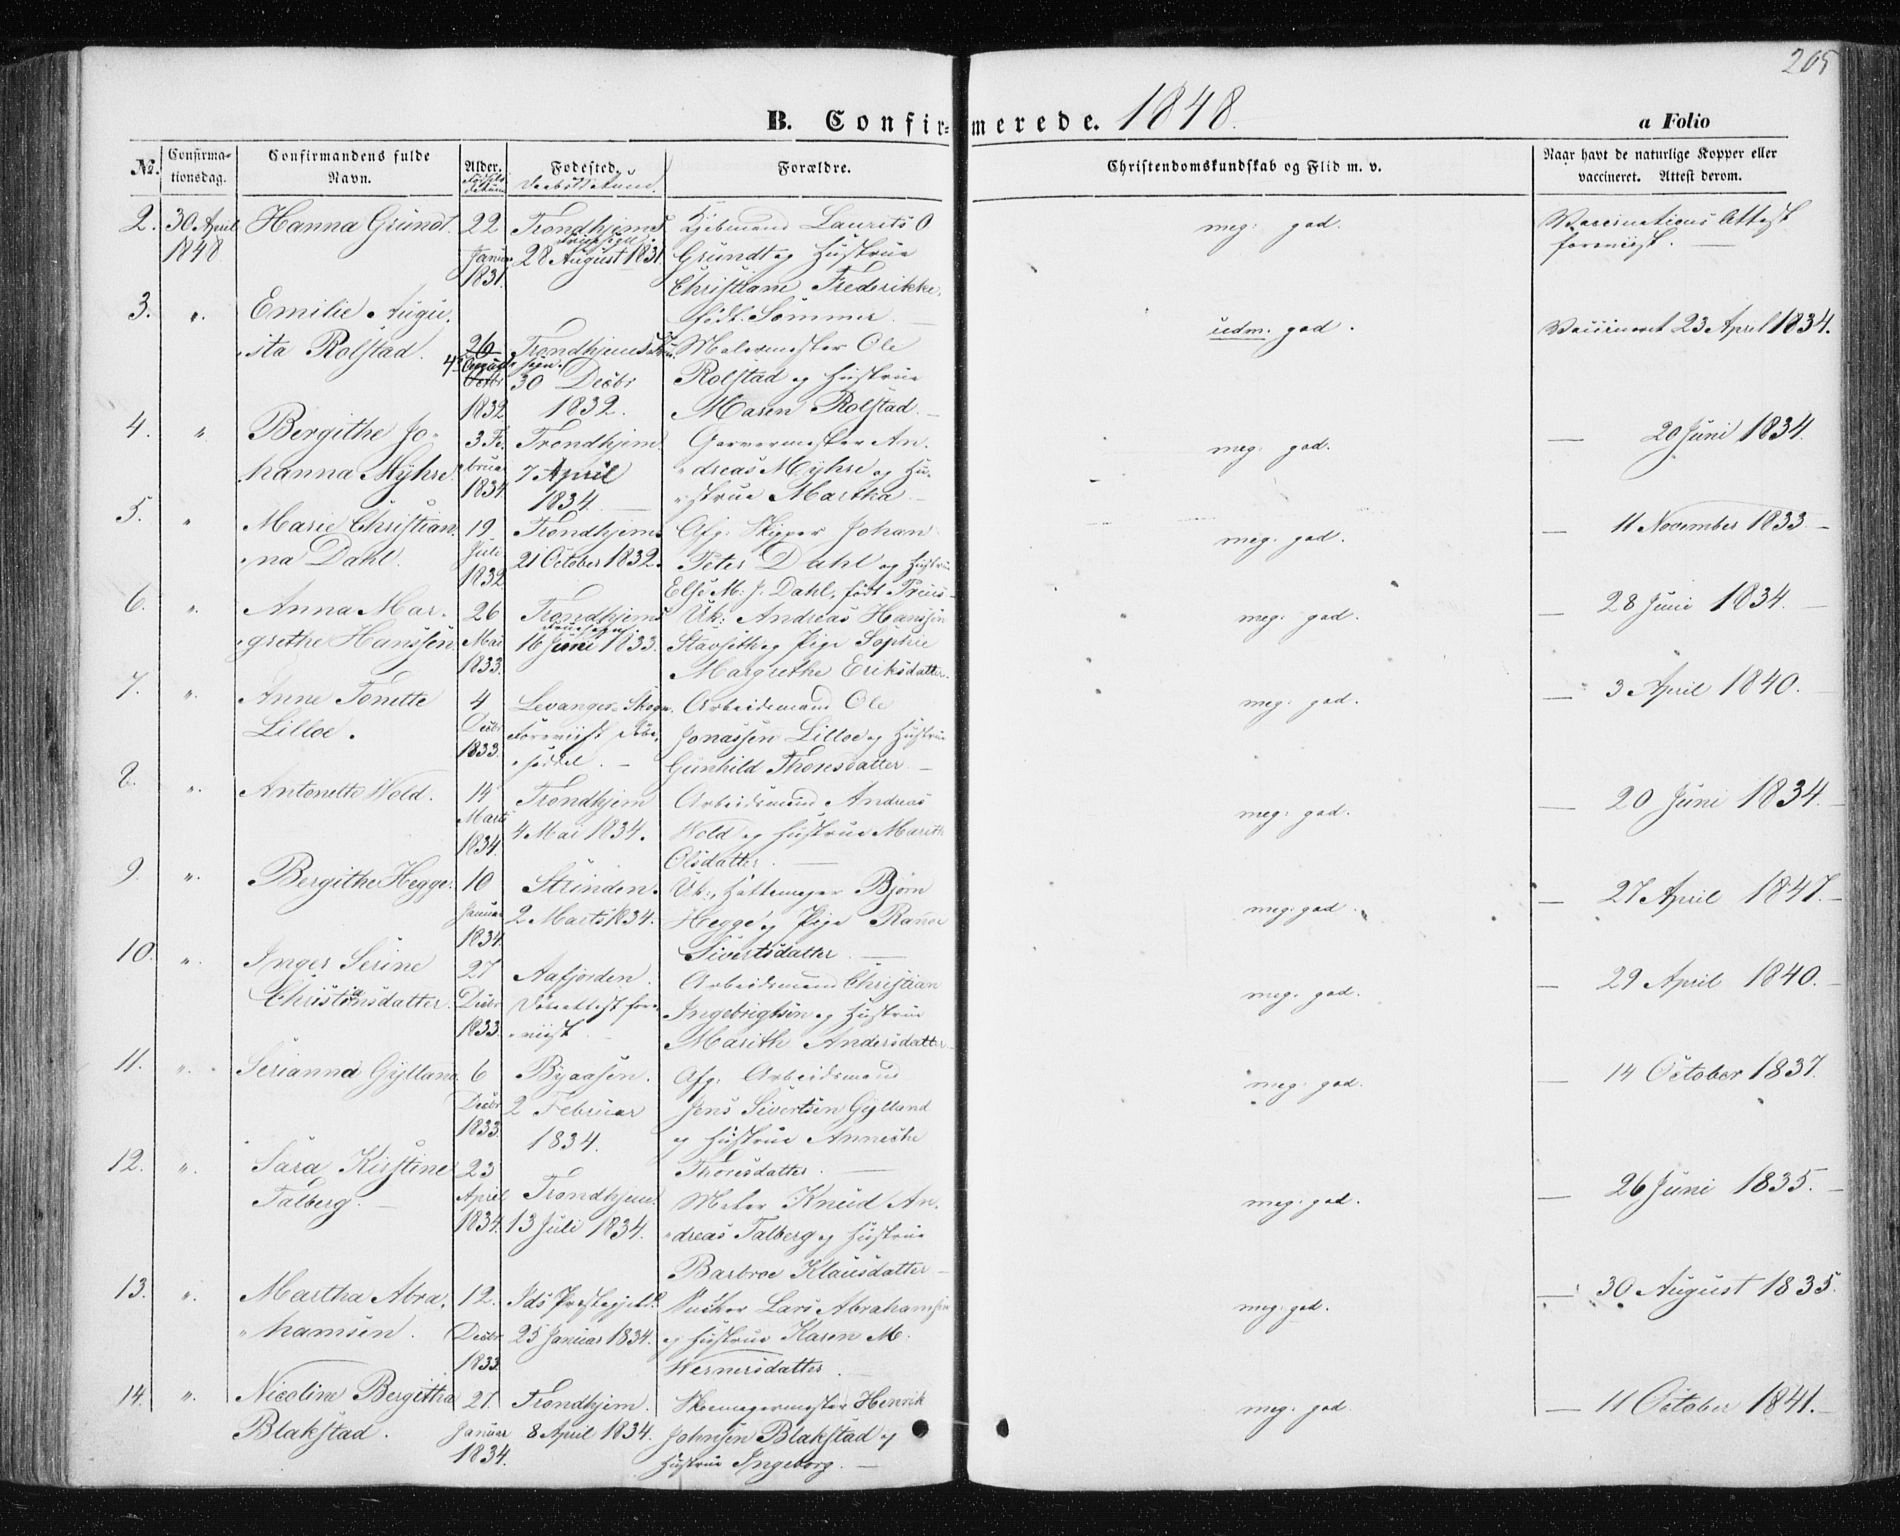 265
B. Confirmerede. 1848.
a Folio
No.
Confirmationsdag.
Confirmandens fulde Navn.
Alder.
Fødested.
Forældre.
Christendomskundskab og Flid m. v.
Naar havt de naturlige Kopper eller vaccineret. Attest derom.
2. 30 April Hanna Grundt. 22 Trondhjems Kjøbmand Laurits O meg: god. Vaccinations Attest
1848 Januar 28 August 1831 Grundt og Hustrue foreviist. —
1831. Christiane Frederikke,
3. ". Emilie Augu- født Sommer. — udm. god. Vaccineret 23 April 1834.
sta Rolstad. 26 Trondhjems Malermester Ole
30 Decbr Rolstad og Hustrue
1832 1832. Maren Rolstad. —
4. " Bergithe Jo- 3 Fe- Trondhjem. Garvermester An- meg: god. — 20 Juni 1834.
hanna Myhre. bruar 7 April dreas Myhre og Hu-
1834 1834. — strue Martha —
5. " Marie Christian- 19 Trondhjem Afg: Skipper Johan meg: god. — 11 November 1833 —
na Dahl. Juli 21 October 1832. Peter Dahl og Hustrue
1832 Else M: J. Dahl, født Preus —
6. ". Anna Mar- 26 Trondhjems Uk: Andreas Hanssen meg: god. — 28 Juni 1834. —
grethe Hanssen. Mai 16 Juni 1833. og Pige Sophie
1833. Margrethe Eriksdatter.
7. ". Anne Tonette 4 Levanger Skogn. Arbeidsmand Ole meg: god. — 3 April 1840. —
Lilloe. Decbr Foreviist Døbe- Jonassen Lilloe og Hustrue
1833. seddel. — Gunhild Thoresdatter. —
8. ". Antonette Wold. 14 Trondhjem Arbeidsmand Andreas meg: god. — 20 Juni 1834. —
Marts 4 Mai 1834. Wold og Hustrue Marith
1834. Olsdatter. —
9. ". Bergithe Hegge. 10 Strinden. Uk: Hattemager Bjørn meg: god. — 27 April 1847. —
Januar 2 Marts 1834. Hegge og Pige
1834. Sivertsdatter. —
10. ". Inger Serine 27 Aafjorden. Arbeidsmand Christian meg: god. — 29 April 1840. —
Christiansdatter. Decbr Døbeattest fore- Ingebrigtsen og Hustrue
1833. viist — Marith Andersdatter —
11. ". Serianna Gylland. 6 Byaasen. Afg: Arbeidsmand meg: god. — 14 October 1837.
Decbr 2 Februar Jens Sivertsen Gylland
1833. 1834. og Hustrue Annechе
12. ". Sara Kirstine 23 Thoresdatter. — meg: god. — 26 Juni 1835. —
Talberg. — April Trondhjem. Maler Knud An-
1834. 13 Juli 1834. dreas Talberg og Hustrue
Barbroe Klausdatter —
13. ". Martha Abra- 12. Ids Præstegjeld. Lars Abrahamsen meg: god. — 30 August 1835.
hamsen. Decbr 25 Januar 1834. og Hustrue Karen M.
1833. Wernersdatter. —
14. ". Nicoline Bergitha 21. Trondhjem. Skomagermester Henrik meg: god. — 11 October 1841. —
Blakstad. Januar 8 April 1834. Johnsen Blakstad og
1834. Hustrue Ingeborg. —